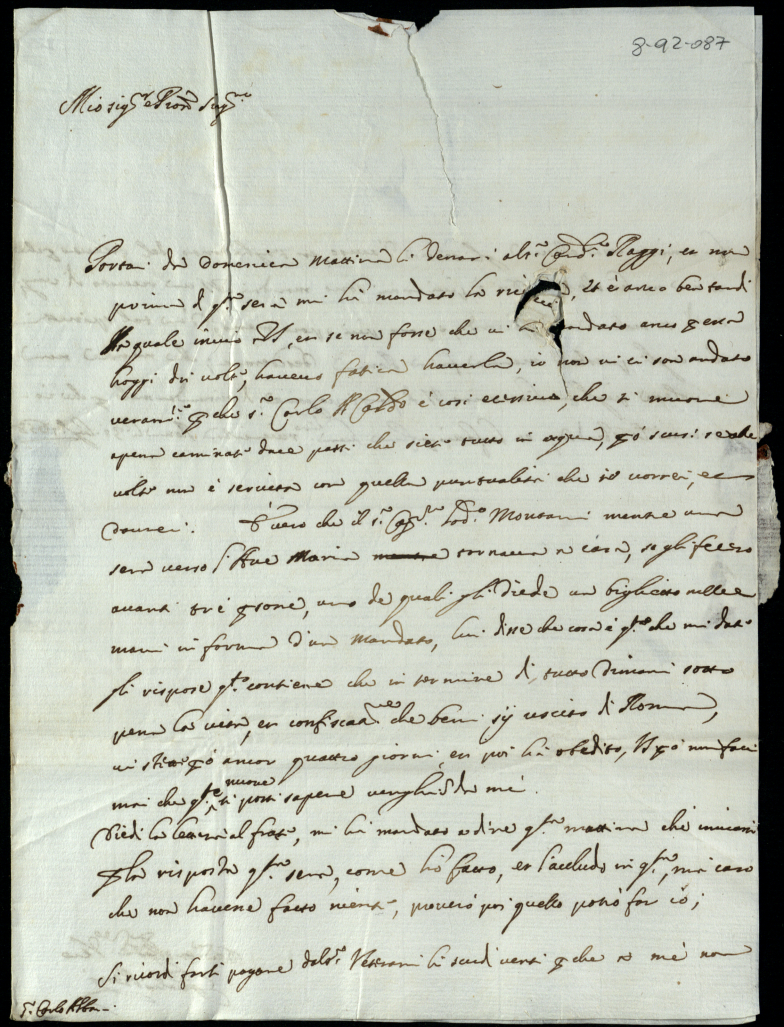 8-92-087
Mio sig.r e Pron Sing.mo
Portai dà Domenica Mattina li denari al s.r Raggi, et non
prima d q.ta sera mi hà mandato la, et è anco ben tardi
la quale invio VS, et se non fosse che vi hò mandato anco
hoggi dui volte, havevo fatica haverla, io non vi ci son andato
veram.te che s.r Carlo il Caldo è cosi ecessivo, che si muore
apena caminate duee passi che siete tutto in aqua, però scusi se alle
volte non è servita con quella puntualità che io vorrei, et
dovrei. È vero che il s.r Montani mentre una
sera verso l'Ave Maria tornava à casa, se gli fecero
avanti tré psone, uno de quali gli diede un biglietto nelle
mani in forma d'un Mandato, lui disse che cosa è q.to che mi date
gli rispose q.to contiene che in termine di tutto Dimani sotto
pena la vita, et confiscat.ne che beni sij uscito di Roma,
vi stiè pò ancor quattro giorni et poi hà obedito, VS pò non facci
mai che q.te nuove si possi sapere venghino da mé.
Diedi la lettera al frate, mi hà mandato à dire q.ta mattina che inviassi
p la risposta q.ta sera, come hò fatto, et l'accludo in q.ta, ma caso
che non havesse fatto niente, provero poi quello potrò far io;
Si ricordi farsi pagare dal s.r Vestrami li scudi venti p che à mé non
S. Carlo